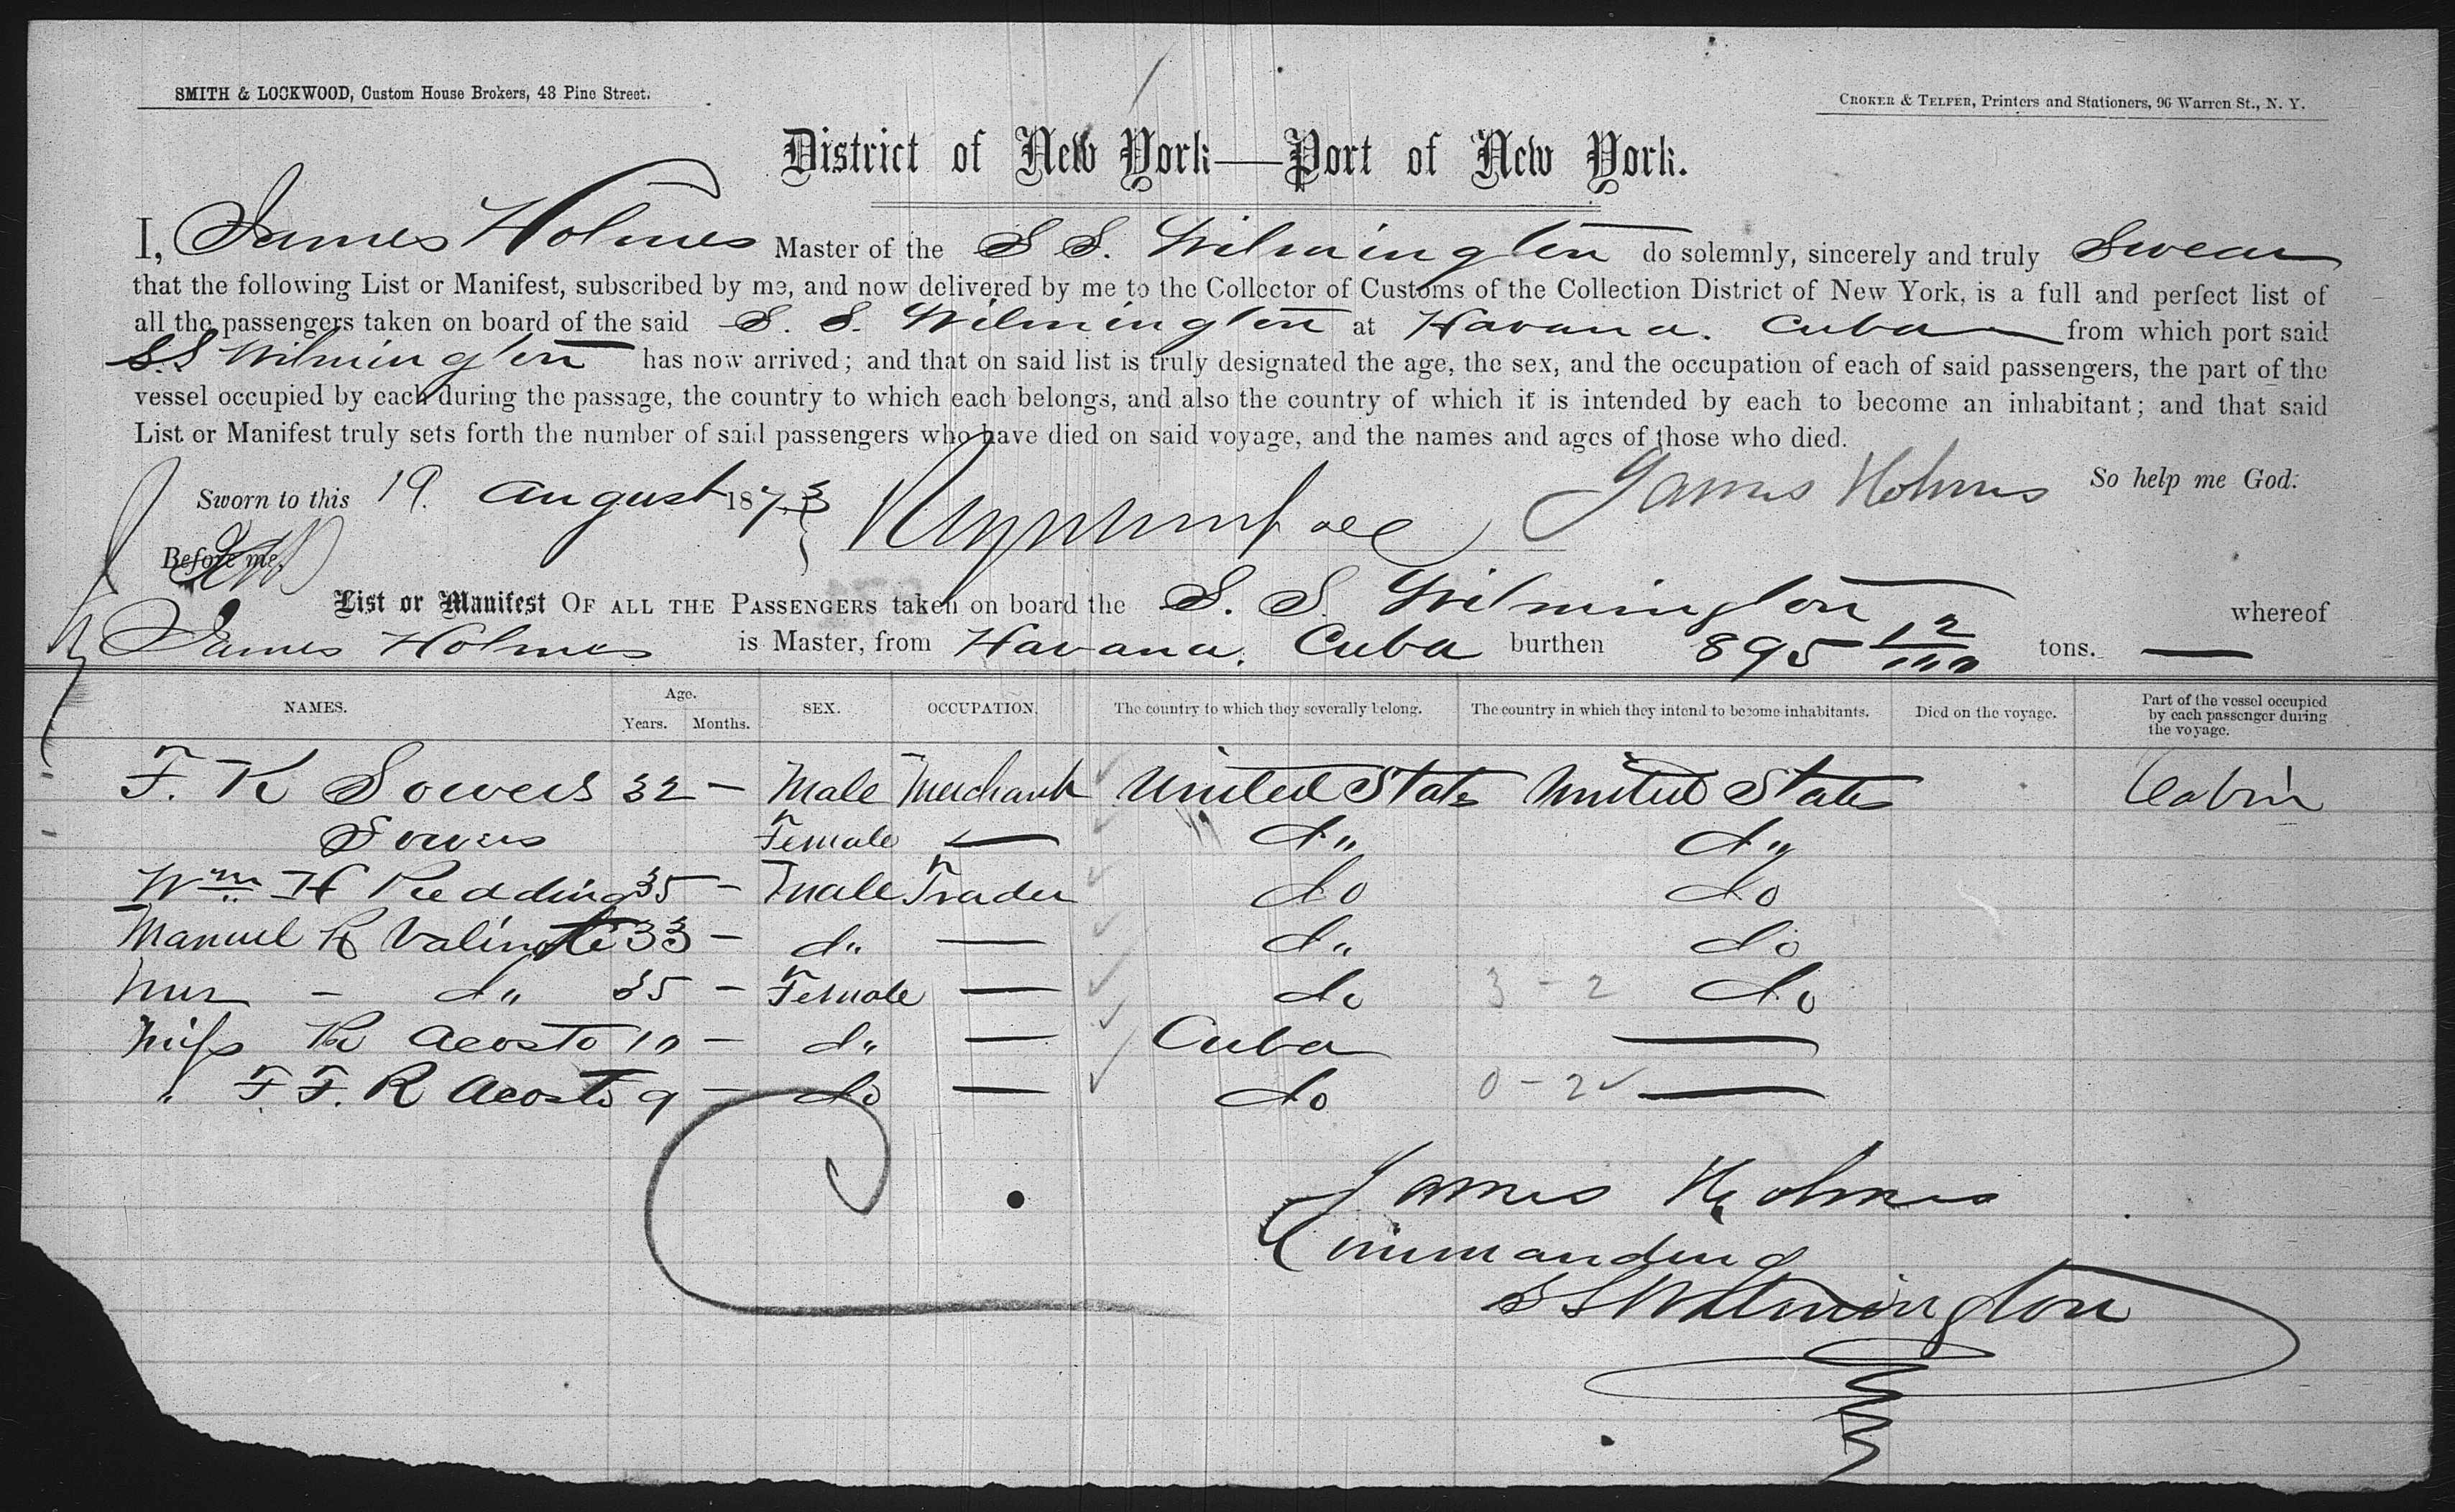 SMITH & LOCKWOOD, Custom House Brokers, 48 Pine Street.
CROKER & TELFER, Printers and Stationers, 96 Warren St., N. Y.
District of New York—Port of New York.
I, James Holmes Master of the S S. Wilmington do solemnly, sincerely and truly Swear
that the following List or Manifest, subscribed by me, and now delivered by me to the Collector of Customs of the Collection District of New York, is a full and perfect list of
all the passengers taken on board of the said S. S. Wilmington at Havana. Cuba from which port said
S.S Wilmington has now arrived; and that on said list is truly designated the age, the sex, and the occupation of each of said passengers, the part of the
vessel occupied by each during the passage, the country to which each belongs, and also the country of which it is intended by each to become an inhabitant; and that said
List or Manifest truly sets forth the number of said passengers who have died on said voyage, and the names and ages of those who died.
Sworn to this 19. August 1873 James Holmes So help me God.
Before me,
List or Manifest OF ALL THE PASSENGERS taken on board the S. S. Wilmington whereof
James Holmes is Master, from Havana. Cuba burthen 895 12/100 tons. —
NAMES. Age. Years. Months. SEX. OCCUPATION. The country to which they severally belong. The country in which they intend to become inhabitants. Died on the voyage. Part of the vessel occupied by each passenger during the voyage.
F. K Sowers 32 — Male Merchant United States United States Cabin
Sowers Female — d" d"
Wm H Redding 35 — Male Trader do do
Manuel R 33 — d" — d" do
Mrs — d" 35 — Female — do 3-2 do
Miss R Acosta 10 — d" — Cuba —
" F. F. R Acosta 9 — do — do 0-2 —
James Holmes
Commanding
SS Wilmington